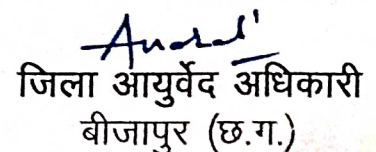 जिला आयुर्वेद अधिकारी
बीजापुर (छ.ग.)